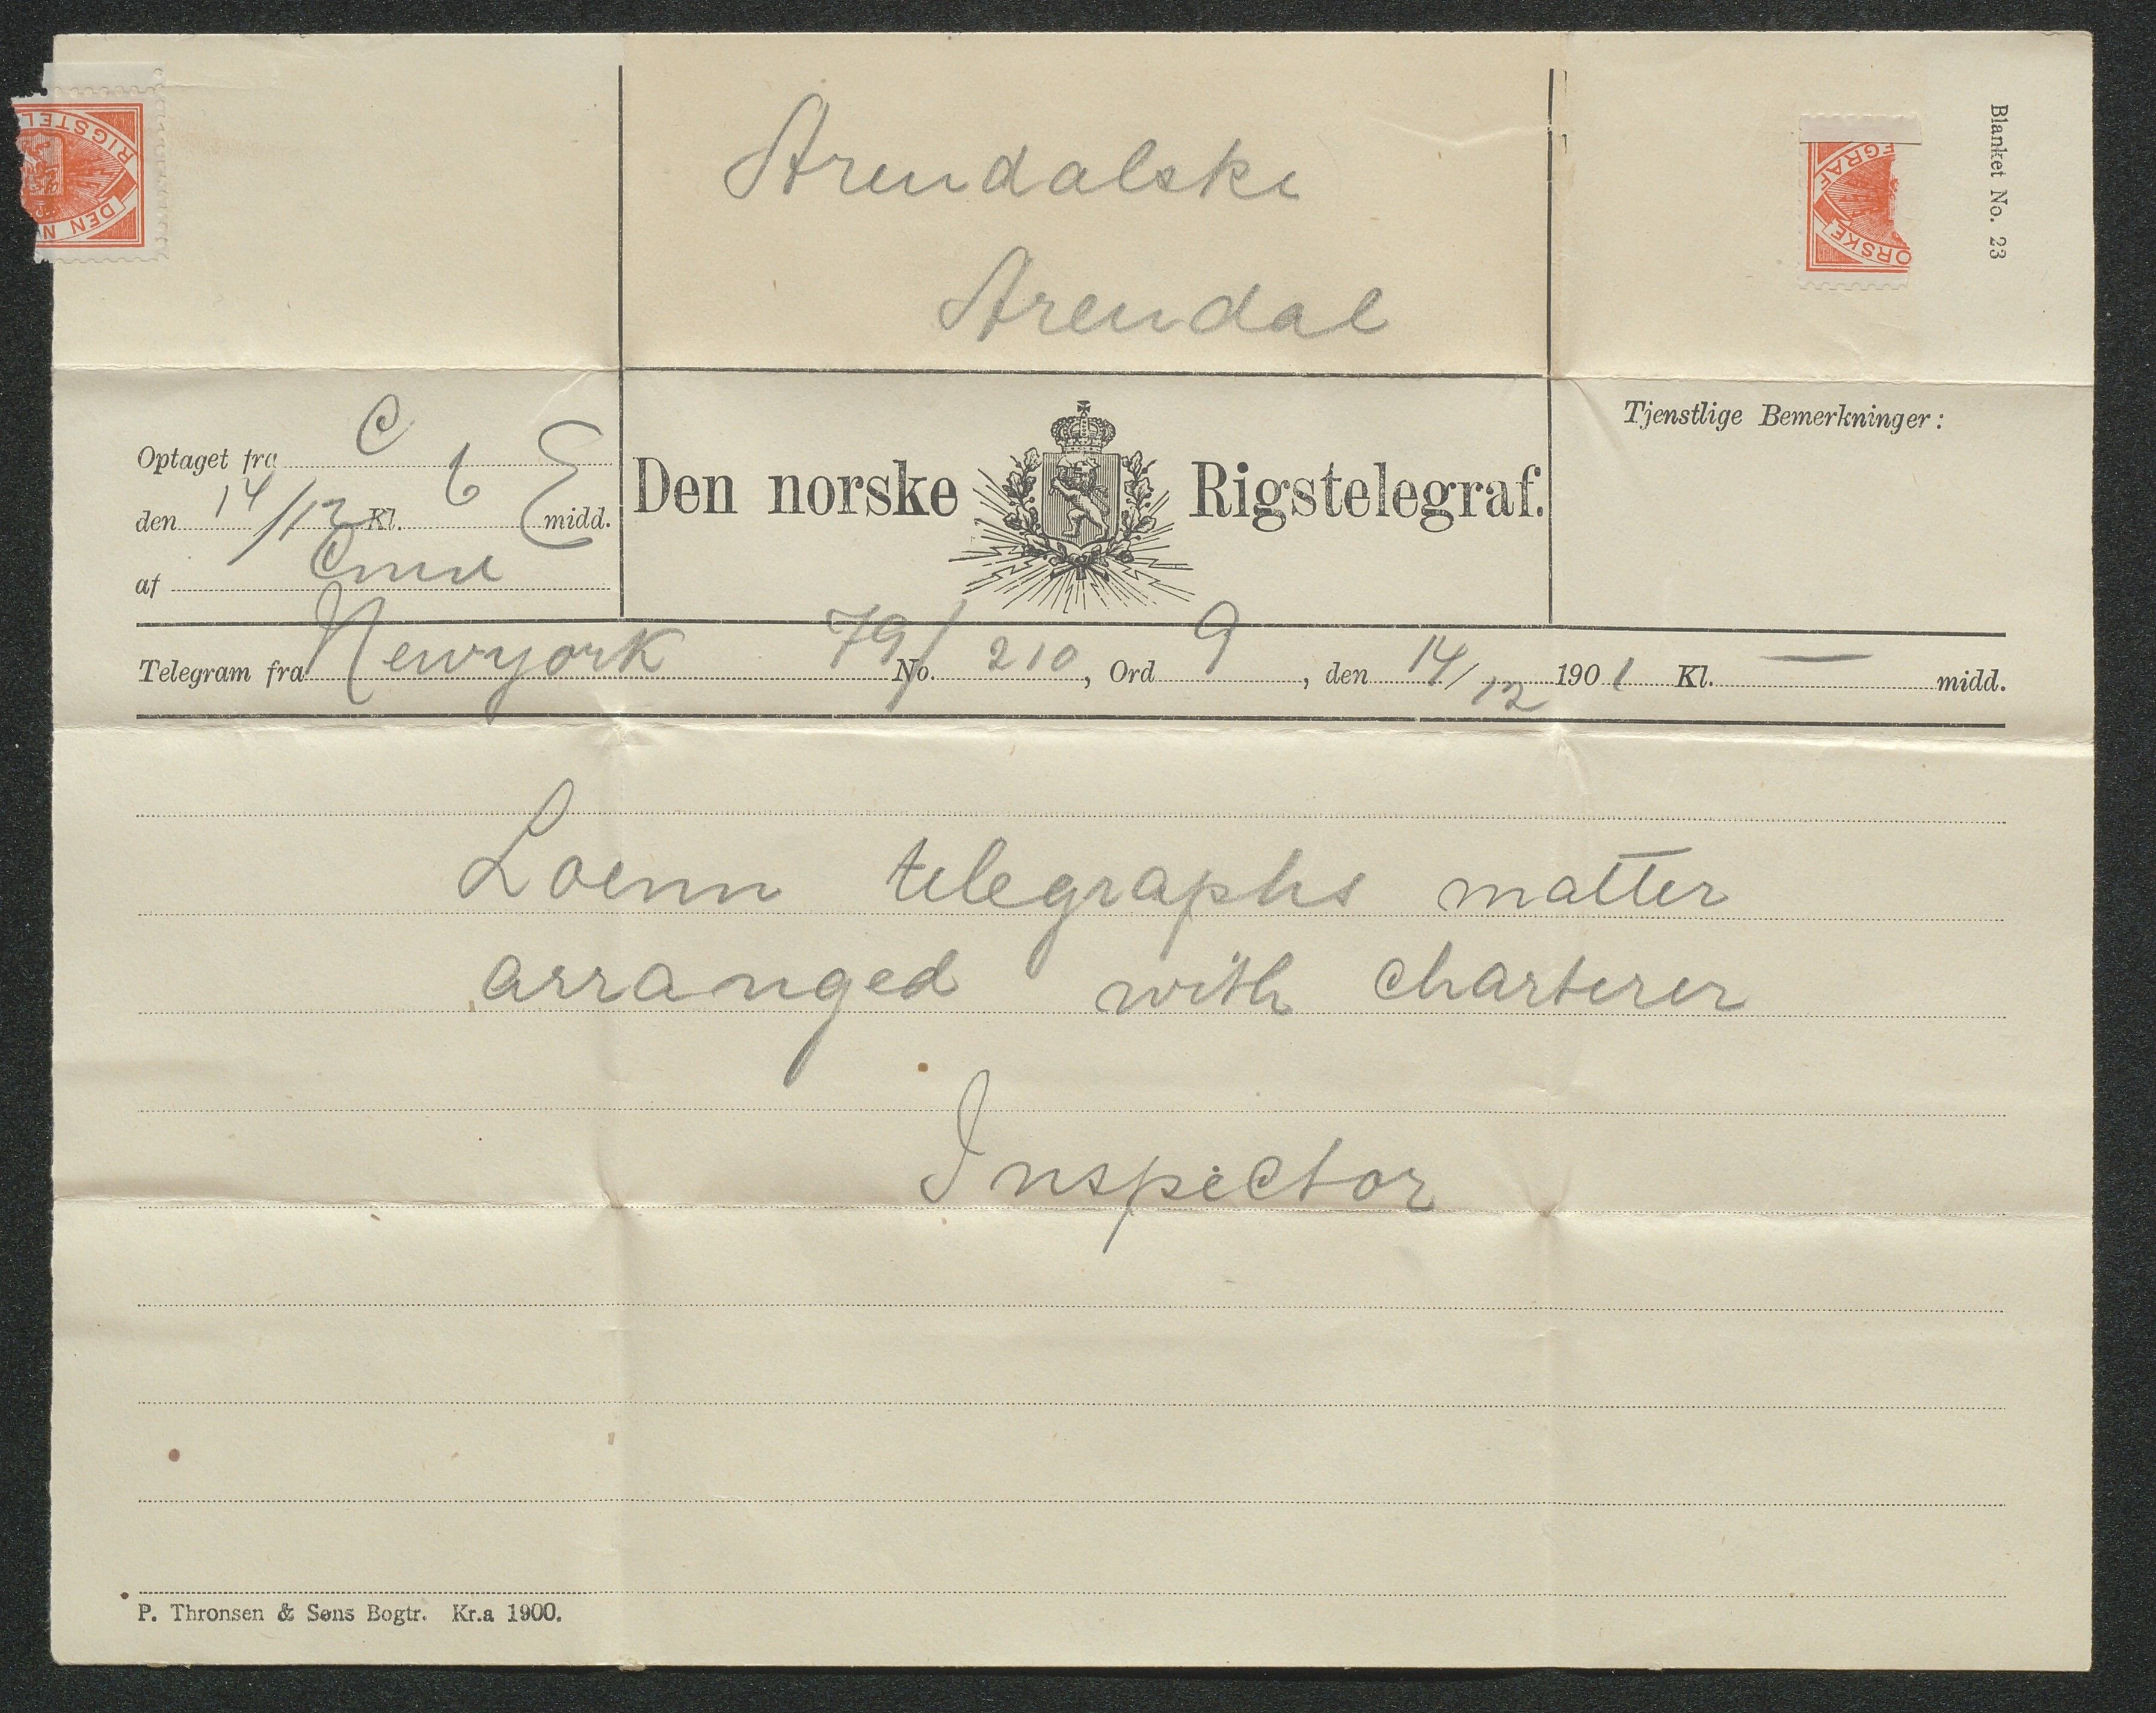 Blanket No. 23
Arendalske
Arendal
RIGSTEL
DEN N
EGRAF
ORSKE
Optaget fra C
den 14/12 Kl. 6 E midd.
af
Den norske Rigstelegraf.
Tjenstlige Bemerkninger:
Telegram fra Newyork 79/ No. 210, Ord 9, den 14/12 1901 Kl. — midd.
Loenn telegraphs matter
arranged with charterer
Inspector
P. Thronsen & Søns Bogtr. Kr.a 1900.